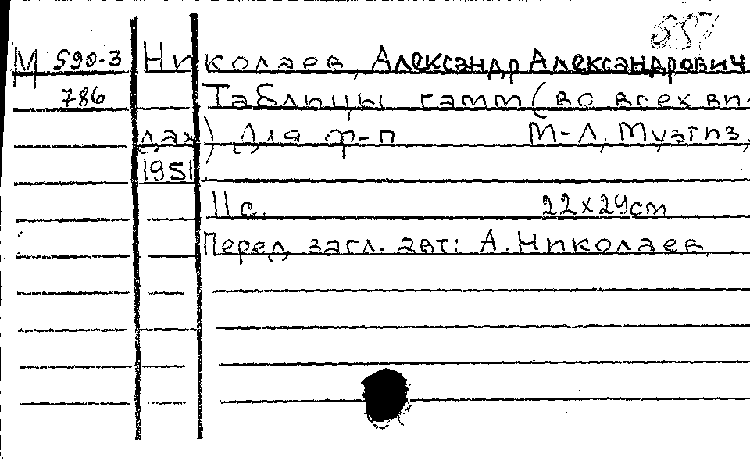 557
М 590-3 Николаев, Александр Александрович
786 Таблицы гамм (во всех ви-
дах) Для ф-п М-Л, Музгиз,
1951
11 с. 22х29cm
Перед загл. авт: А. Николаев